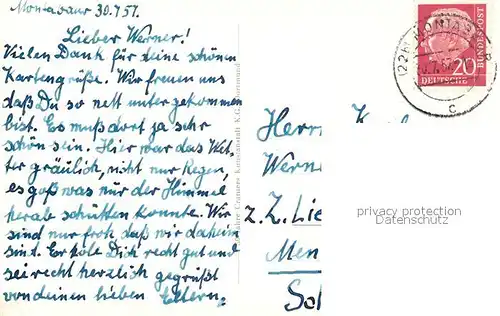 Montabaur 30.7.57.
Lieber Werner!
Vielen Dank für deine schönen
Kartengrüße! Wir freuen uns
daß Du so nett untergekommen
bist. Es muß dort ja sehr
schön sein. Hier war das Wet-
ter gräulich, nicht nur Regen,
es goß was nur der Himmel
herab schütten konnte. Wir
sind nur froh daß wir daheim
sind. Erhole Dich recht gut und
sei recht herzlich gegrüßt
von deinen lieben Eltern.
DEUTSCHE
BUNDESPOST
20
c
Herrn
Werne
z. Zt. Lie
Men
Sol
privacy protection
Datenschutz